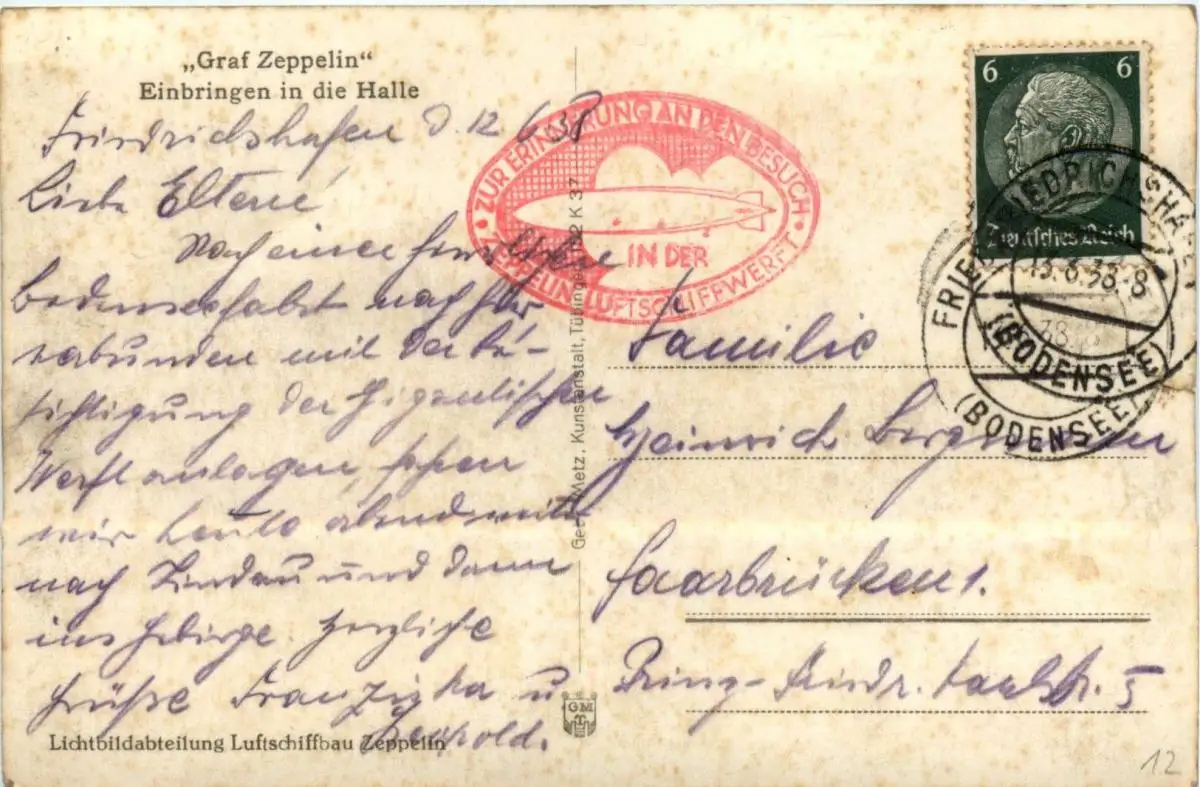 „Graf Zeppelin“
Einbringen in die Halle
Friedrichshafen d. 12 6. 38
Liebe Eltern!
Nach einer herrlichen
Bodenseefahrt nach hier
verbunden mit der Be-
sichtigung der gigantischen
Werftanlagen, fahren
wir heute abend weiter
nach Lindau und dann
ins Gebirge Herzliche
Grüße Franziska u
Leopold.
Lichtbildabteilung Luftschiffbau Zeppelin
ZUR ERINNERUNG AN DEN BESUCH
IN DER
ZEPPELIN LUFTSCHIFFWERFT
Metz, Kunstanstalt, Tübingen K 37
GM
T
6 6
Deutsches Reich
FRIEDRICHSHAFEN
13.6.38.-8
(BODENSEE)
38
(BODENSEE)
Familie
Heinrich
Saarbrücken 1.
5
12